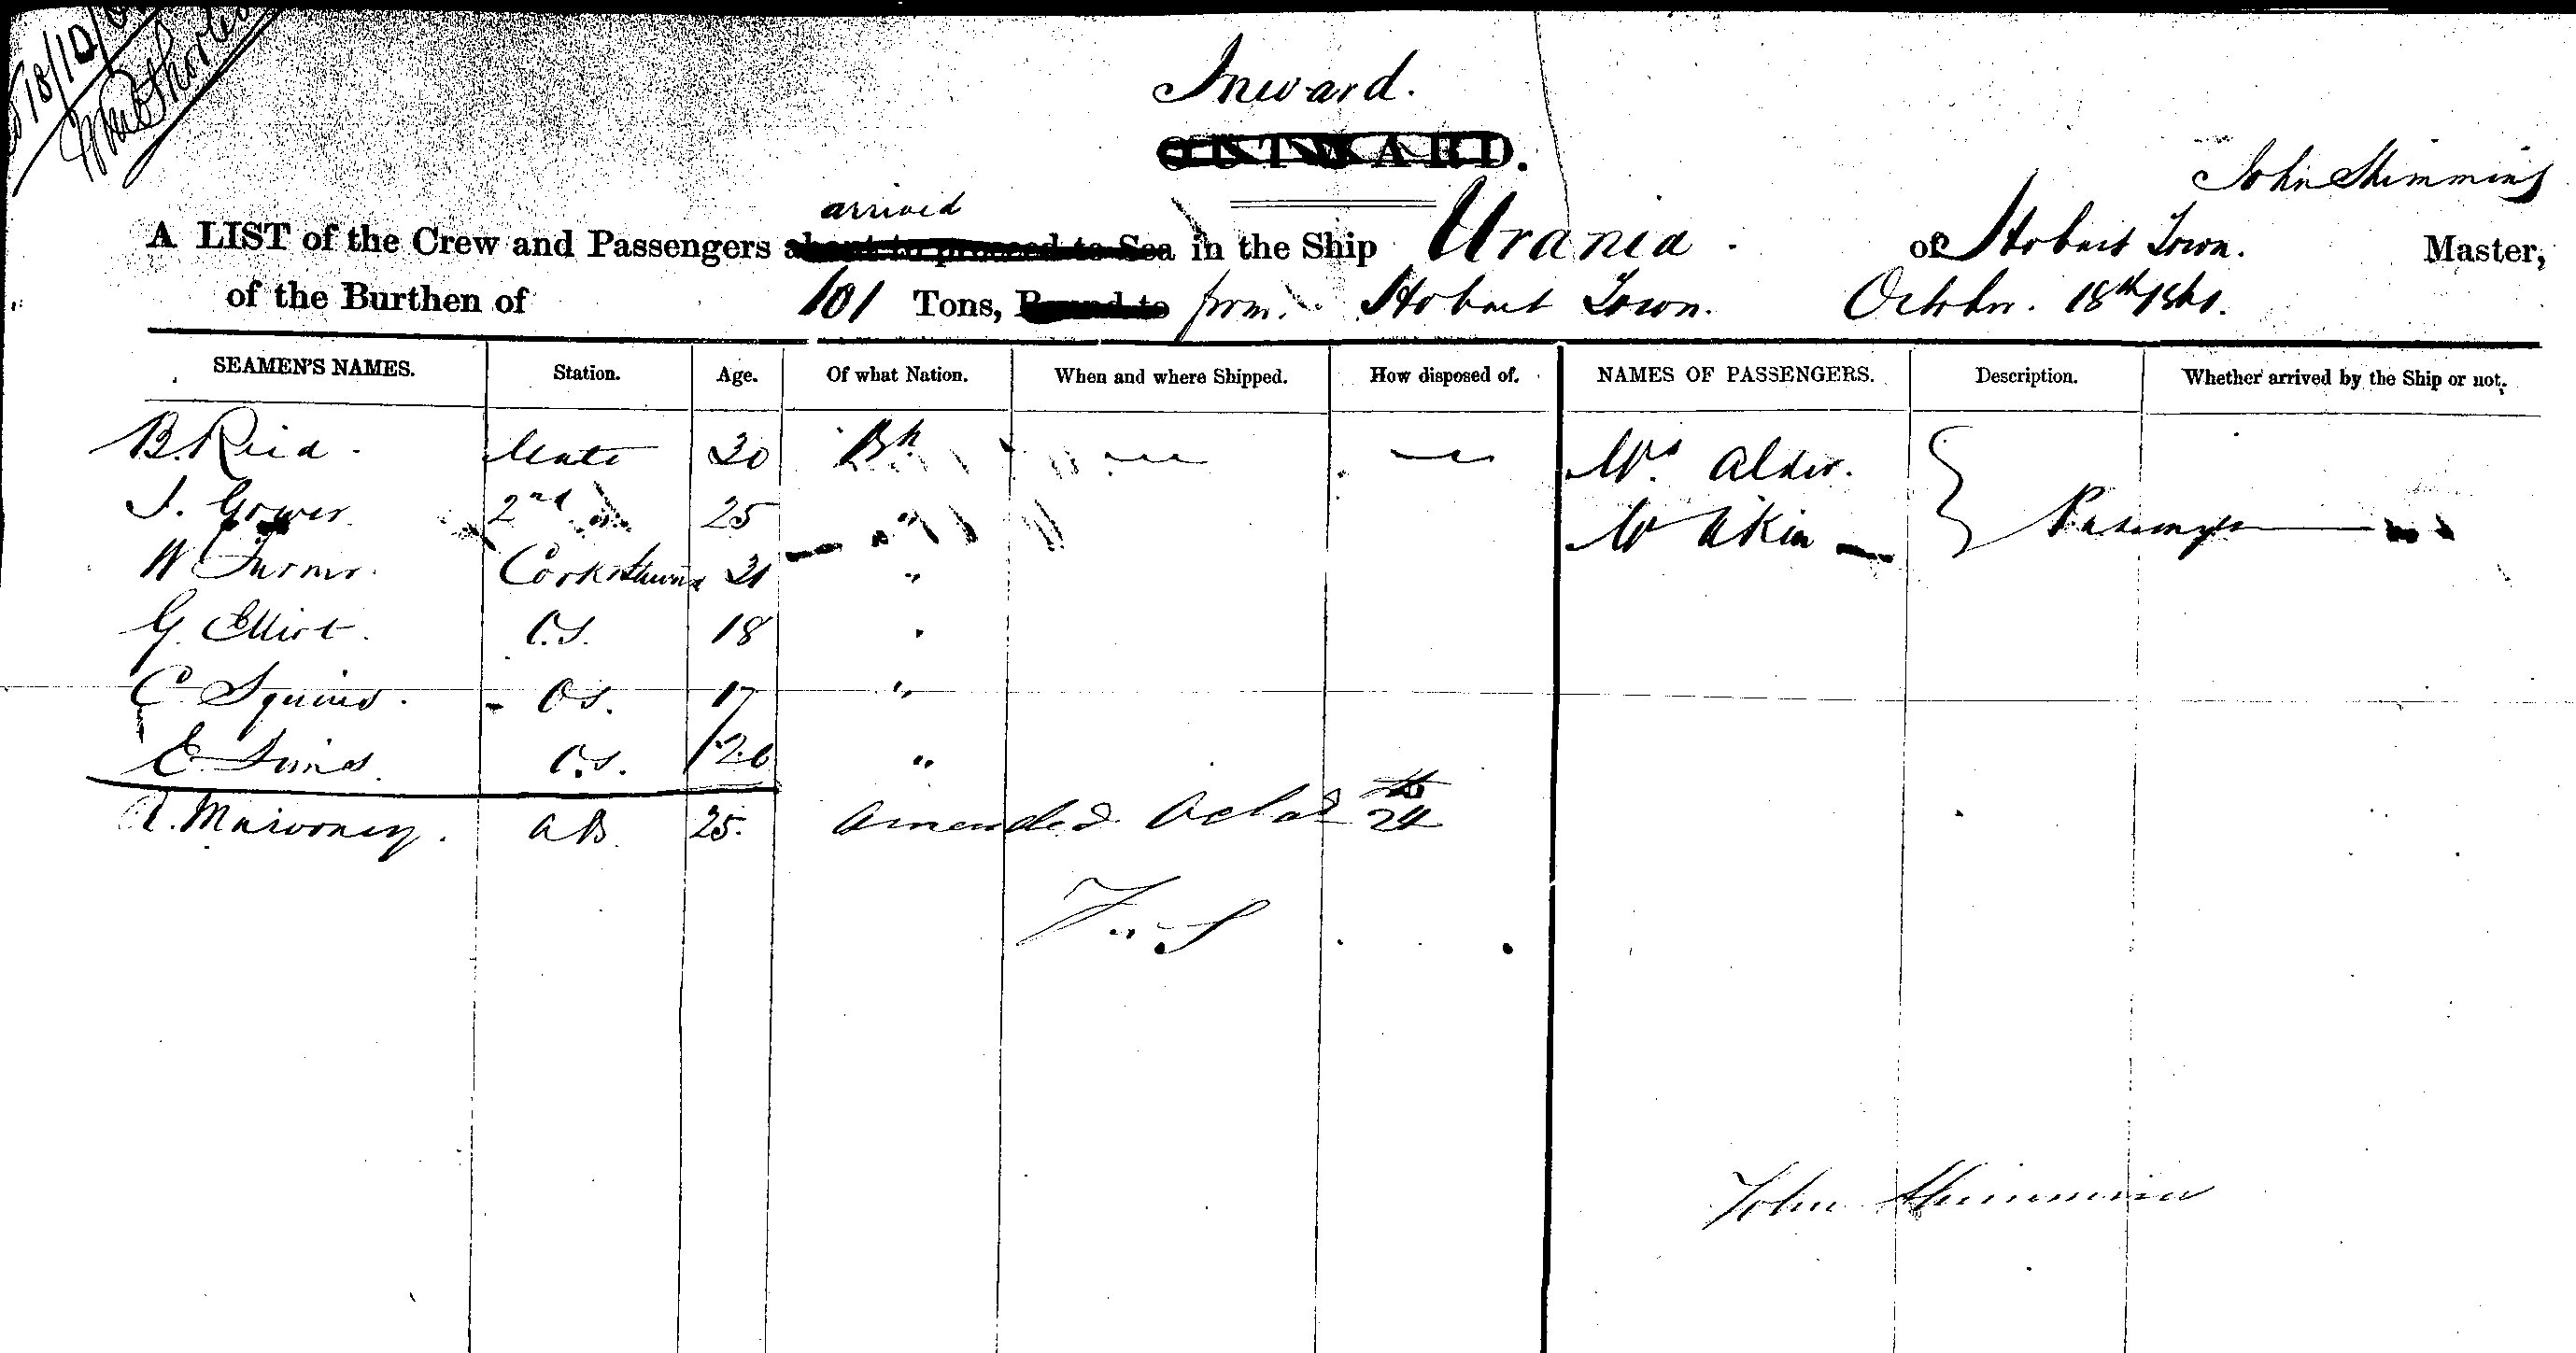 18/10/
Inward.
OUTWARD.
John Shimmins
arrived
A LIST of the Crew and Passengers about to proceed to Sea in the Ship Urania. of Hobart Town. Master,
of the Burthen of 101 Tons, Bound to from Hobart Town. October. 18th 1861.
SEAMEN'S NAMES. Station. Age. Of what Nation. When and where Shipped. How disposed of. NAMES OF PASSENGERS. Description. Whether arrived by the Ship or not.
B. Reid. Mate 30 Bh Mrs Alder.
J. Gower 2nd " 25 " Mr Passengers
W Turner. Cook & Steward 21 "
G. Elliot. O.S. 18 "
C Squires. OS. 17 "
E. O.S. 20 "
Maroney. AB 25. Amended 24
John Shimmins